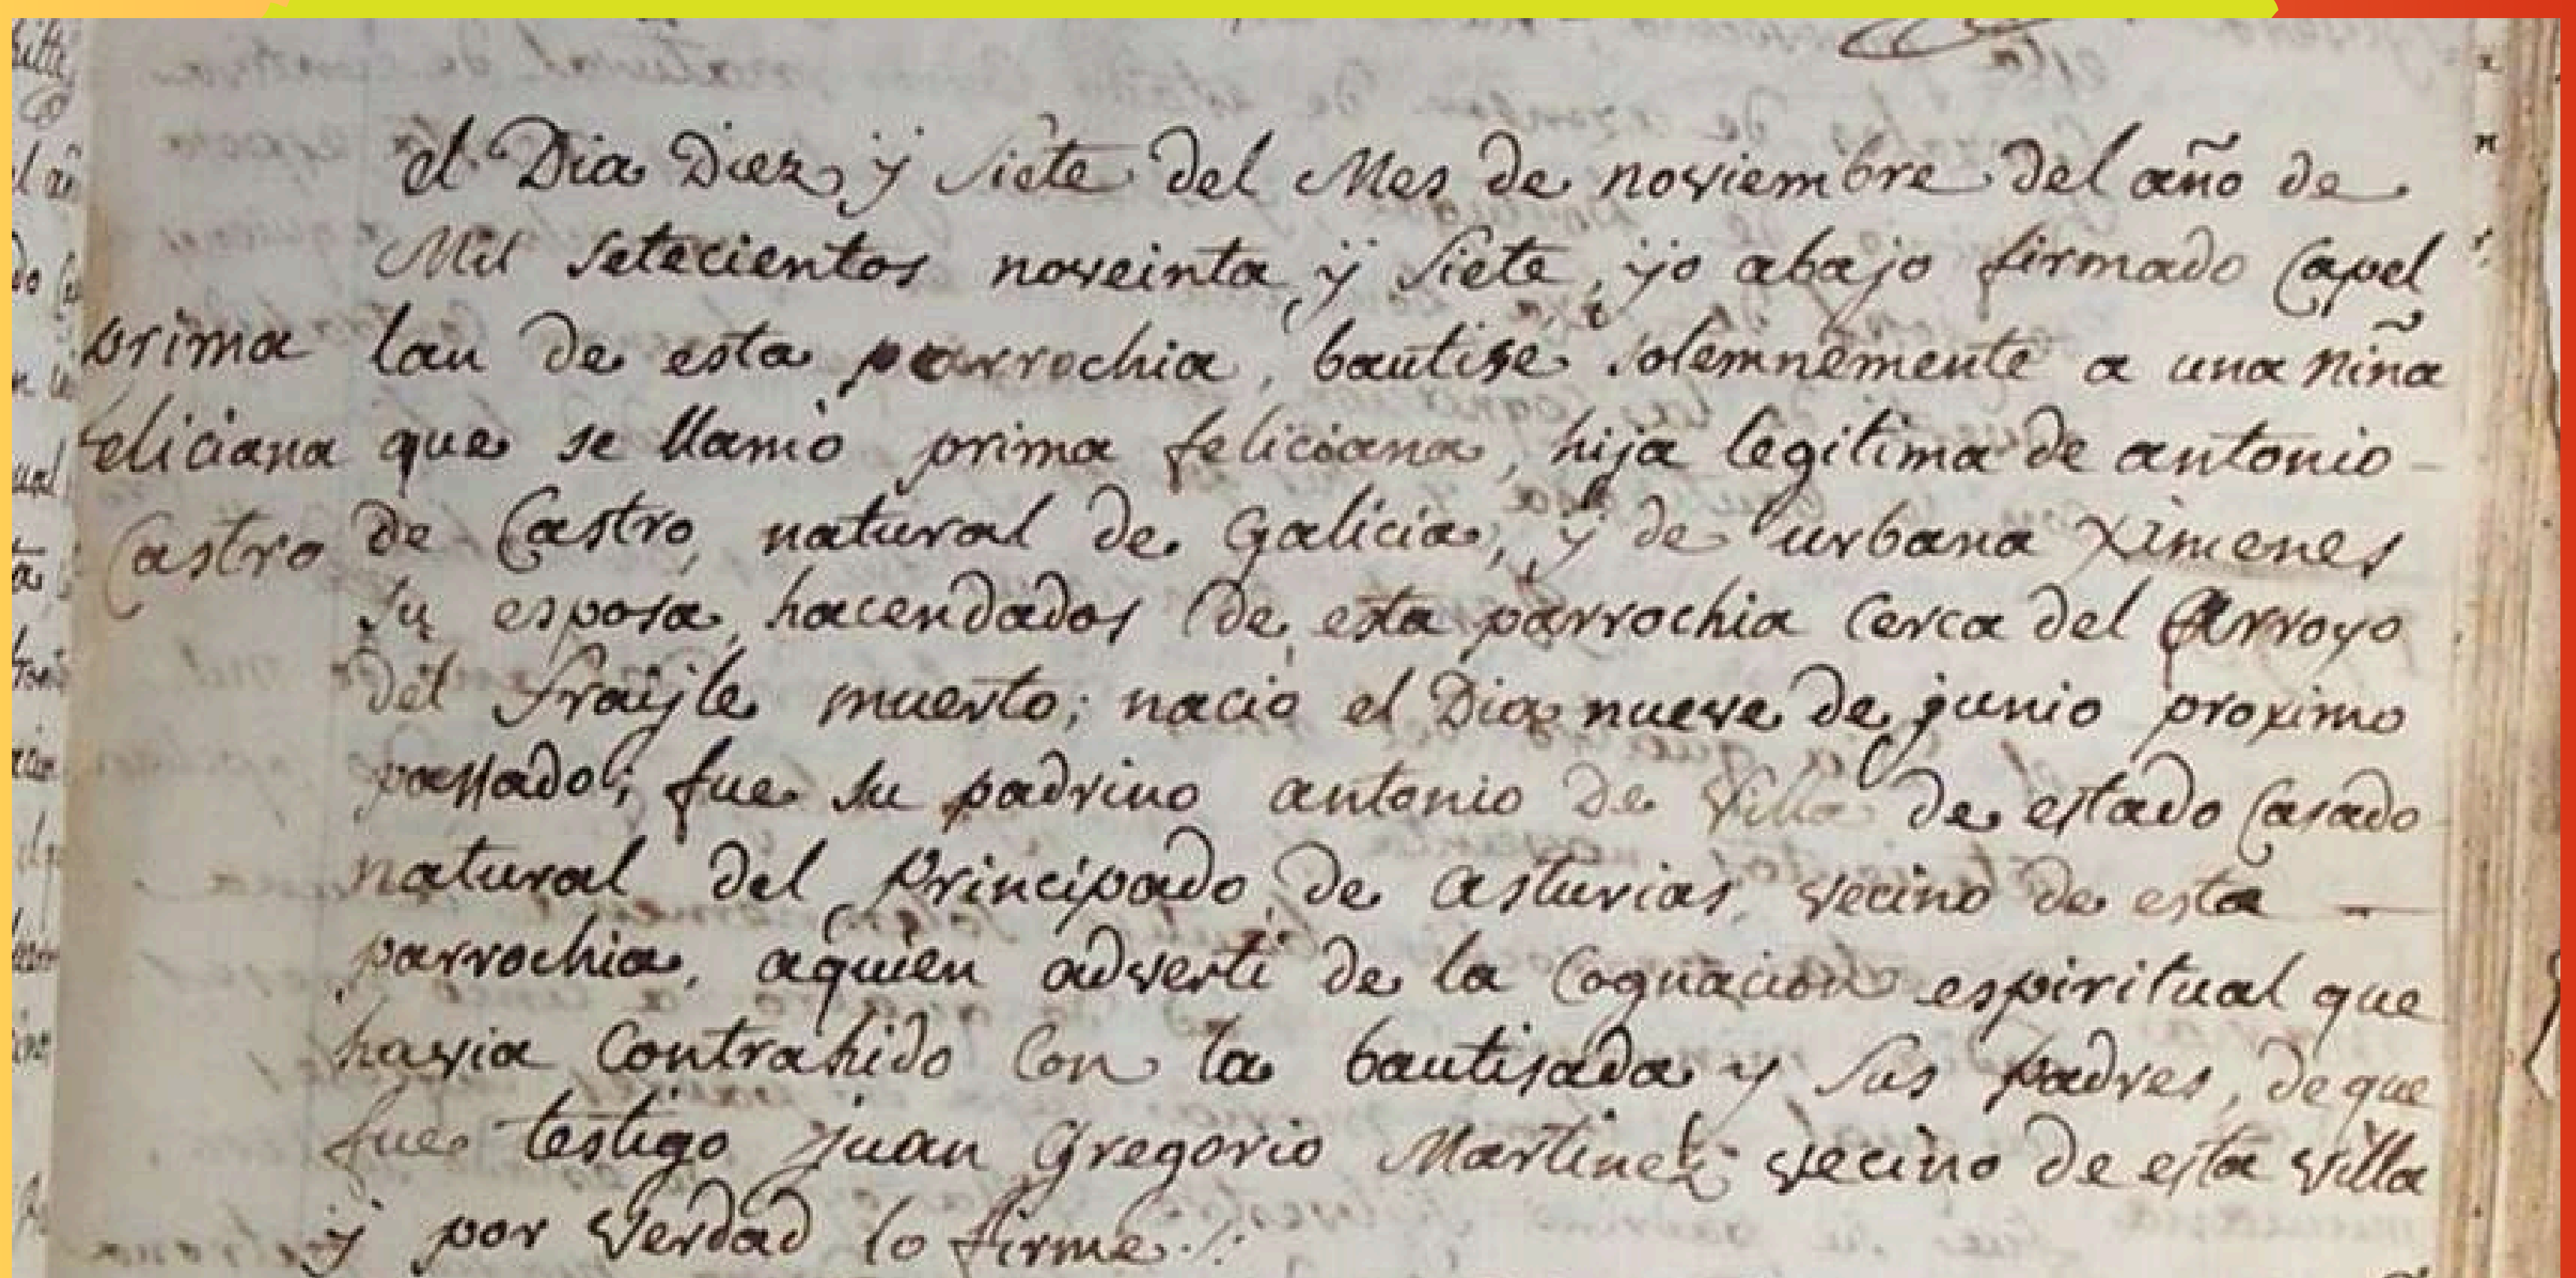 el Dia Diez y siete del Mes de noviembre del año de
Mil setecientos noveinta y siete, yo abajo firmado Capel
prima lan de esta parrochia, bautise solemnemente a una niña
feliciana que se llamò prima feliciana, hija legitima de antonio
Castro de Castro, natural de Galicia, y de urbana Ximenes
su esposa, hacendados de esta parrochia cerca del Arroyo
del frayle muerto; naciò el Dia nueve de junio proximo
passado; fue su padrino antonio de Villa de estado Casado
natural del principado de asturias, vecino de esta —
parrochia, aquien adverti de la Cognacion espiritual que
havia Contrahido Con la bautisada y sus padres, de que
fue testigo juan Gregorio Martinez vecino de esta villa
y por verdad lo firme